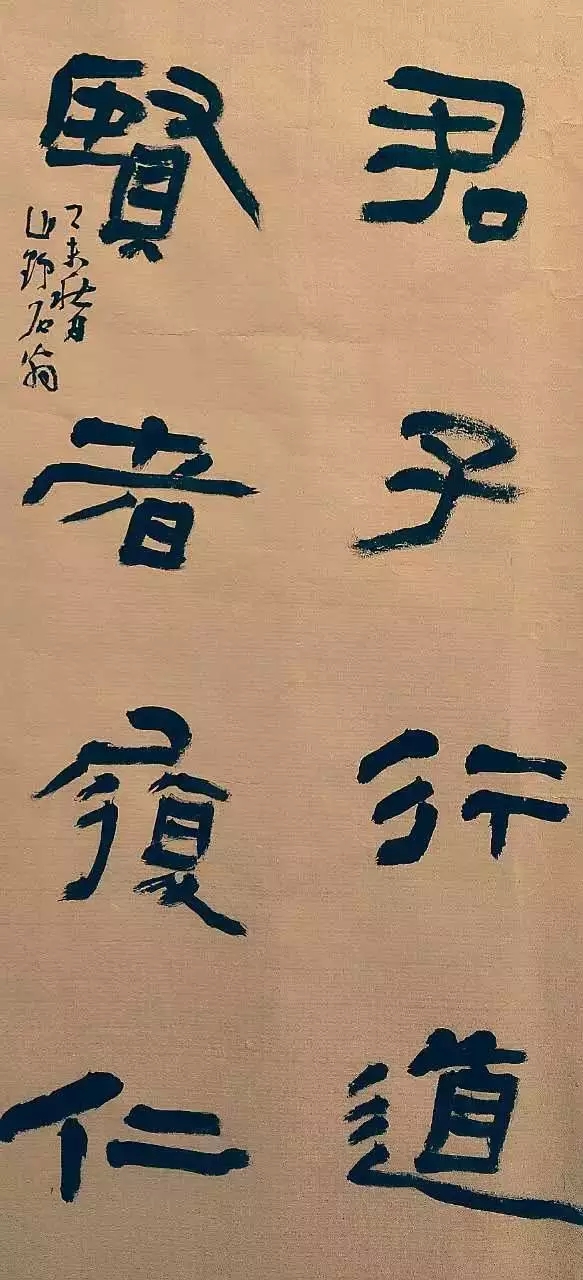 君子行道
賢者履仁
丁未秋月
山野石翁